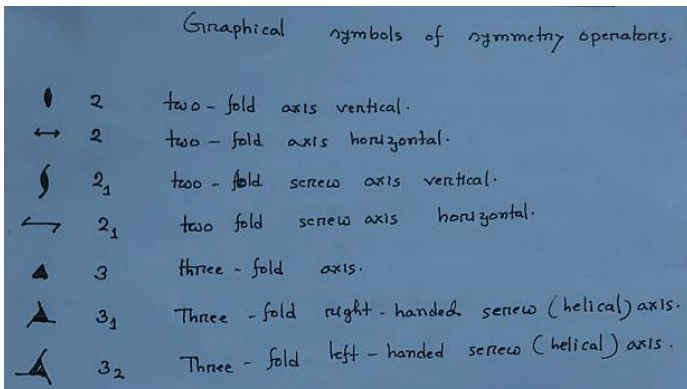 Graphical symbols of symmetry operators.
2 two-fold axis vertical.
2 two-fold axis horizontal.
2₁ two-fold screw axis vertical.
2₁ two fold screw axis horizontal.
3 three-fold axis.
3₁ Three-fold right-handed screw (helical) axis.
3₂ Three-fold left-handed screw (helical) axis.